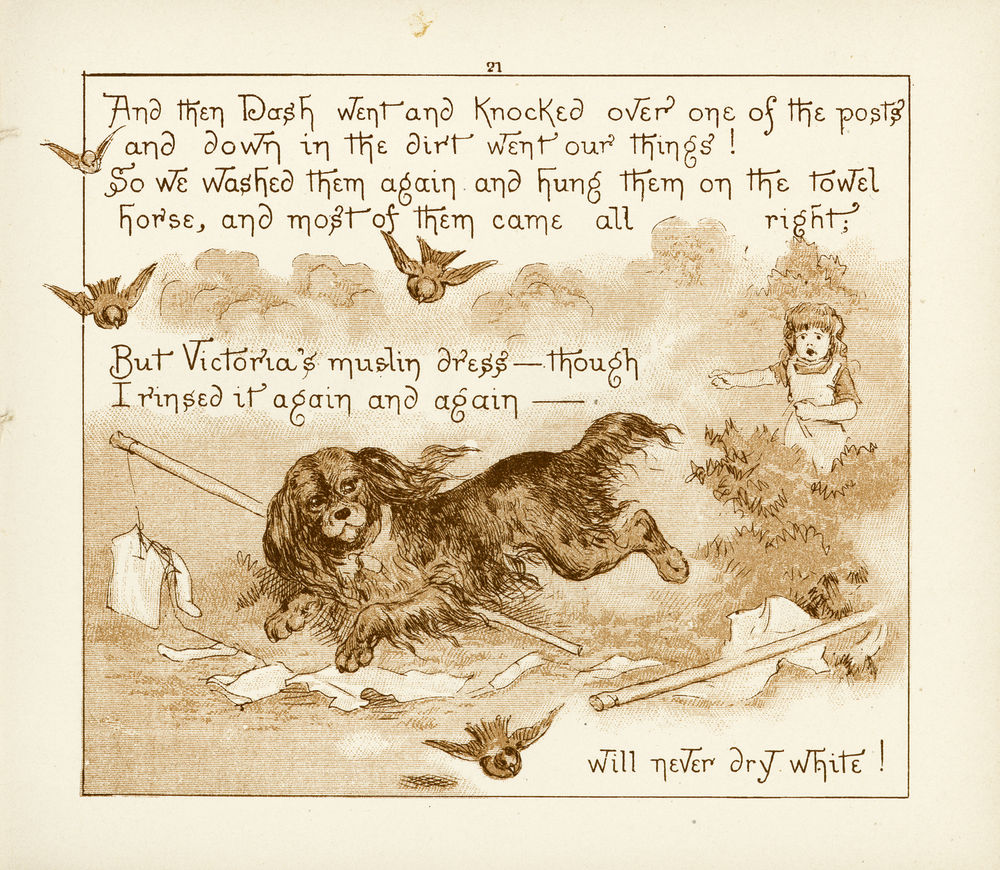 21
And then Dash went and knocked over one of the posts
and down in the dirt went our things!
So we washed them again and hung them on the towel
horse, and most of them came all right;
But Victoria's muslin dress — though
I rinsed it again and again —
will never dry white!